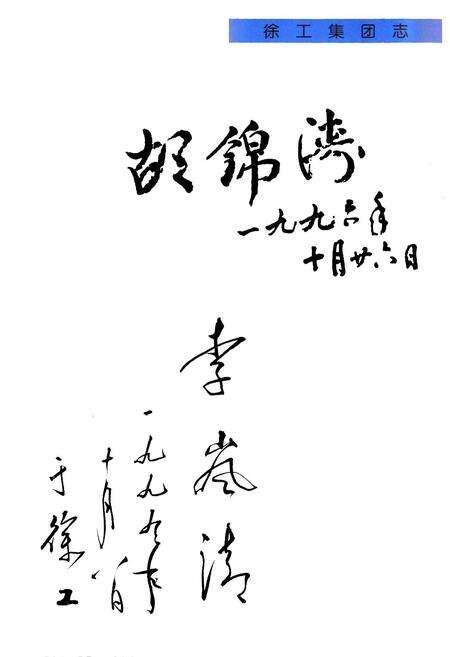 徐工集团志
胡錦濤
一九九六年
十月廿六日
李嵐清
一九九五年
十月八日
于徐工